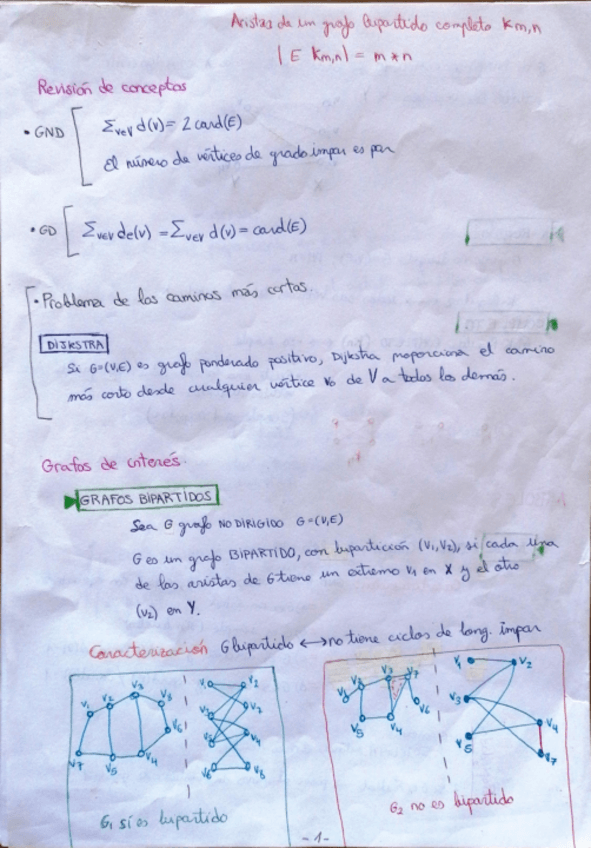 Aristas de un grafo bipartido completo Km,n
| E Km,n| = m * n
Revisión de conceptos
• GND
Σv∈V d(v) = 2 card(E)
El número de vértices de grado impar es par
• GD
Σv∈V de(v) = Σv∈V d(v) = card(E)
• Problema de los caminos más cortos.
DIJKSTRA
Si G=(V,E) es grafo ponderado positivo, Dijkstra proporciona el camino
más corto desde cualquier vértice v0 de V a todos los demás.
Grafos de interés.
GRAFOS BIPARTIDOS
Sea G grafo NO DIRIGIDO G=(V,E)
G es un grafo BIPARTIDO, con bipartición (V1,V2), si cada una
de las aristas de G tiene un extremo v1 en X y el otro
(v2) en Y.
Caracterización G bipartido ↔ no tiene ciclos de long. impar
V1 V2 V3 V8 V6 V7 V5 V4
V1 V2 V3 V7 V5 V4 V6 V8
G1 sí es bipartido
V1 V2 V3 V7 V5 V4 V6
V1 V2 V3 V4 V5 V7
G2 no es bipartido
-1-